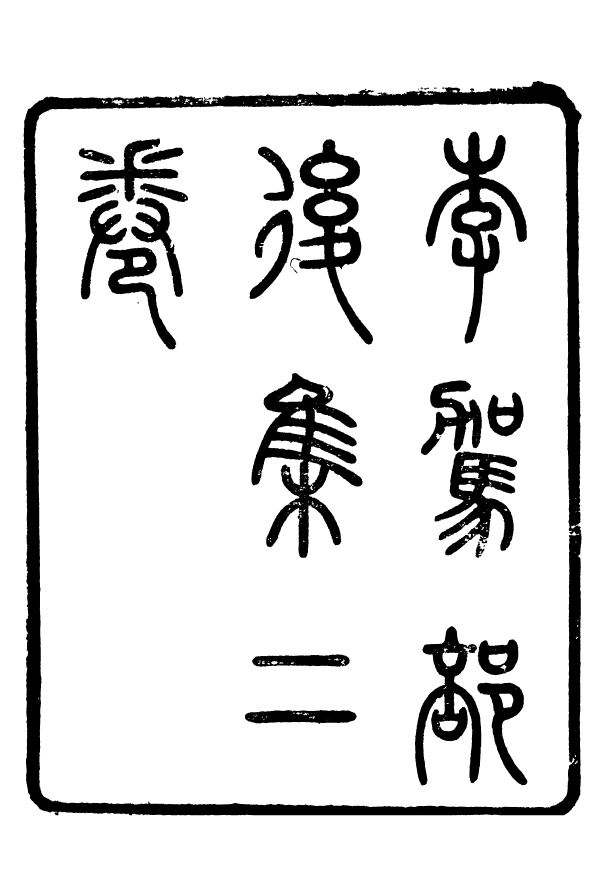 李駕部
後集二
卷